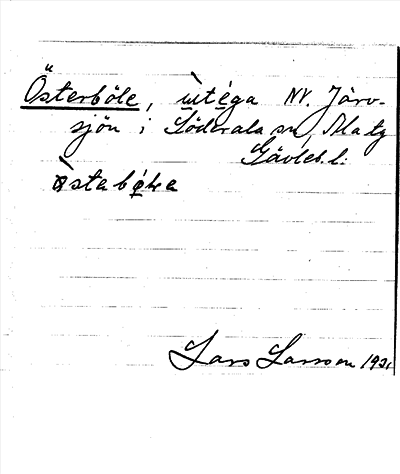 Österböle, utéga NV. Järv-
sjön i Söderala sn, Ala tg
Gävleb. l.
östabøla
Lars Larsson 1931